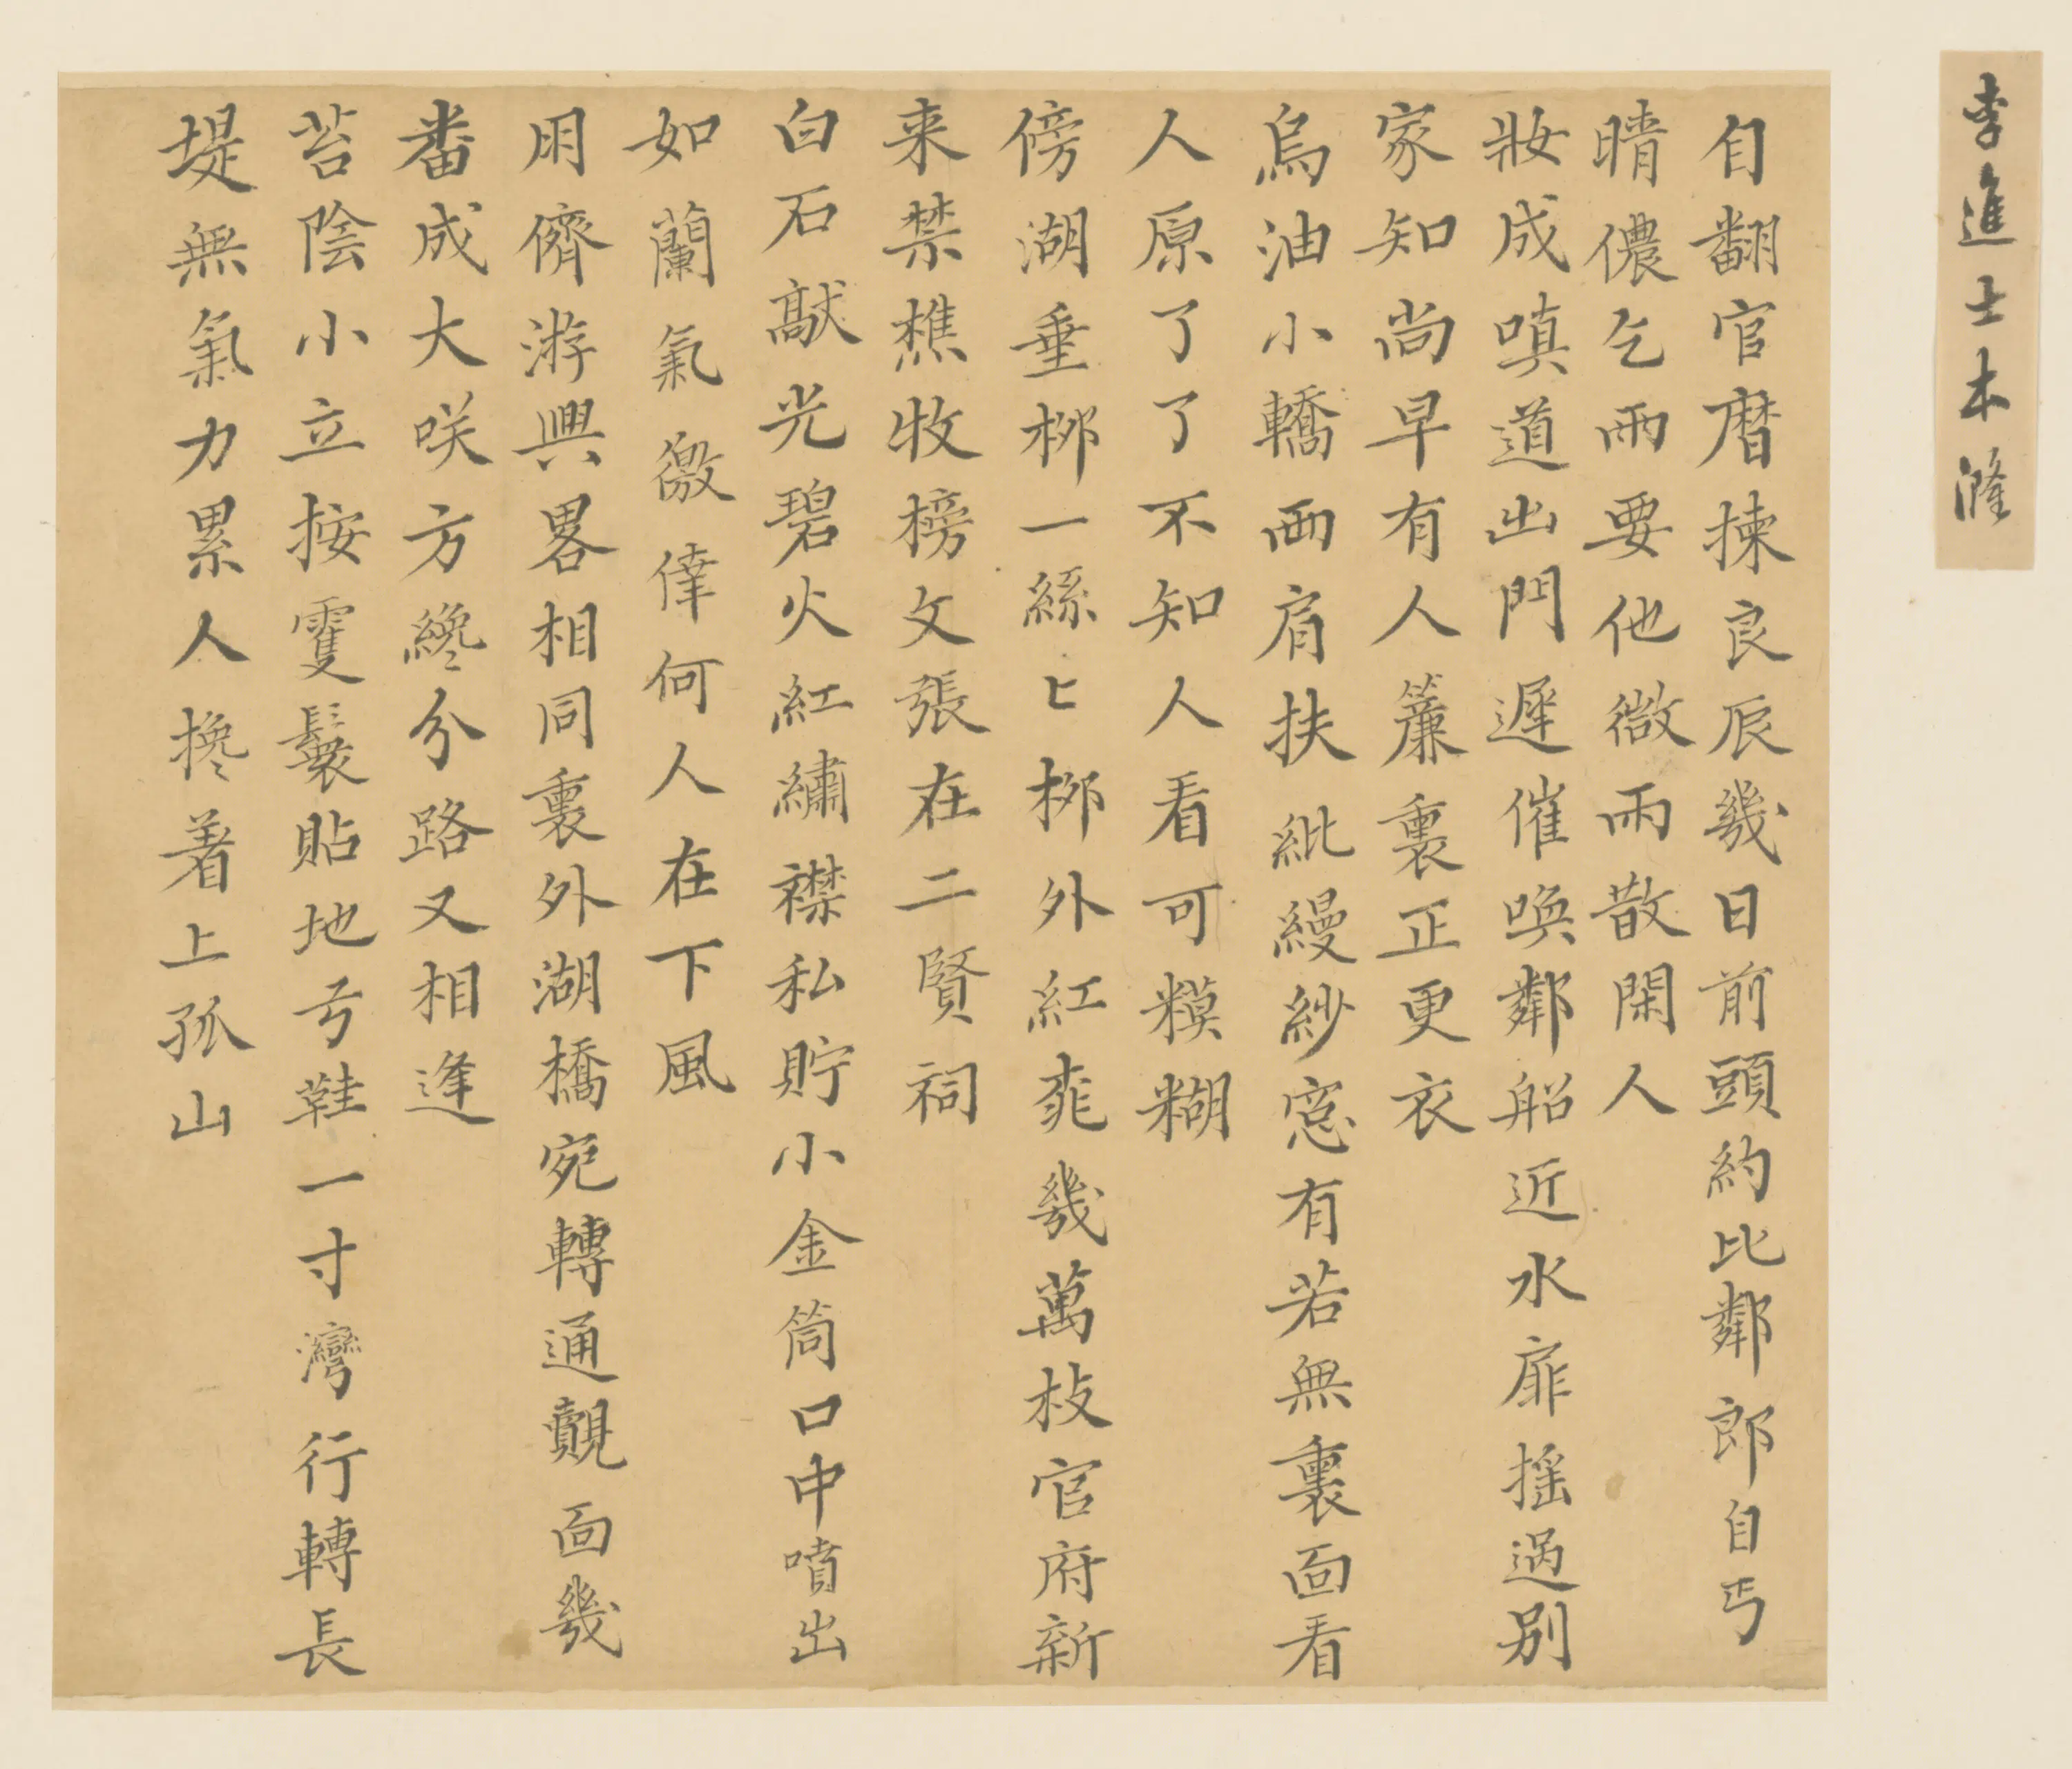 李進士本漋
自翻官曆揀良辰幾日前頭約比鄰郎自丐
晴儂乞雨要他微雨散閑人
妝成嗔道出門遲催喚鄰船近水扉搖過别
家知尚早有人簾裏正更衣
烏油小轎兩肩扶紕縵紗窓有若無裏面看
人原了了不知人看可糢糊
傍湖垂桞一絲〻桞外紅桃幾萬枝官府新
来禁樵牧榜文張在二賢祠
白石敲光碧火紅繡襟私貯小金筒口中噴出
如蘭氣儌倖何人在下風
朋儕游興畧相同裏外湖橋宛轉通覿面幾
番成大咲方纔分路又相逢
苔陰小立按雙鬟貼地弓鞋一寸灣行轉長
堤無氣力累人搀着上孤山